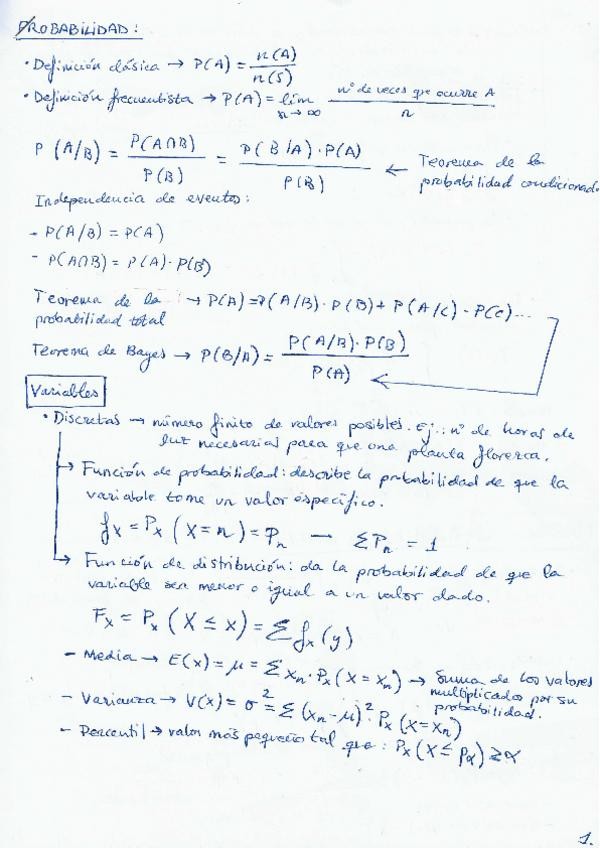 PROBABILIDAD:
· Definición clásica → P(A) = n(A) / n(S)
· Definición frecuentista → P(A) = lim n→∞ nº de veces que ocurre A / n
P(A/B) = P(A∩B) / P(B) = P(B/A)·P(A) / P(B) ← Teorema de la
probabilidad condicionada
Independencia de eventos:
- P(A/B) = P(A)
- P(A∩B) = P(A)·P(B)
Teorema de la → P(A) = P(A/B)·P(B) + P(A/C)·P(C)...
probabilidad total
Teorema de Bayes → P(B/A) = P(A/B)·P(B) / P(A)
Variables
· Discretas → número finito de valores posibles. Ej.: nº de horas de
luz necesarias para que una planta florezca.
→ Función de probabilidad: describe la probabilidad de que la
variable tome un valor específico.
fx = Px (X = n) = Pn — ΣPn = 1
→ Función de distribución: da la probabilidad de que la
variable sea menor o igual a un valor dado.
Fx = Px (X ≤ x) = Σ fx (y)
- Media → E(x) = μ = Σ xn · Px (X = xn) → Suma de los valores
multiplicados por su
probabilidad.
- Varianza → V(x) = σ² = Σ (xn - μ)² · Px (X = xn)
- Percentil → valor más pequeño tal que: Px (X ≤ pα) ≥ α
1.